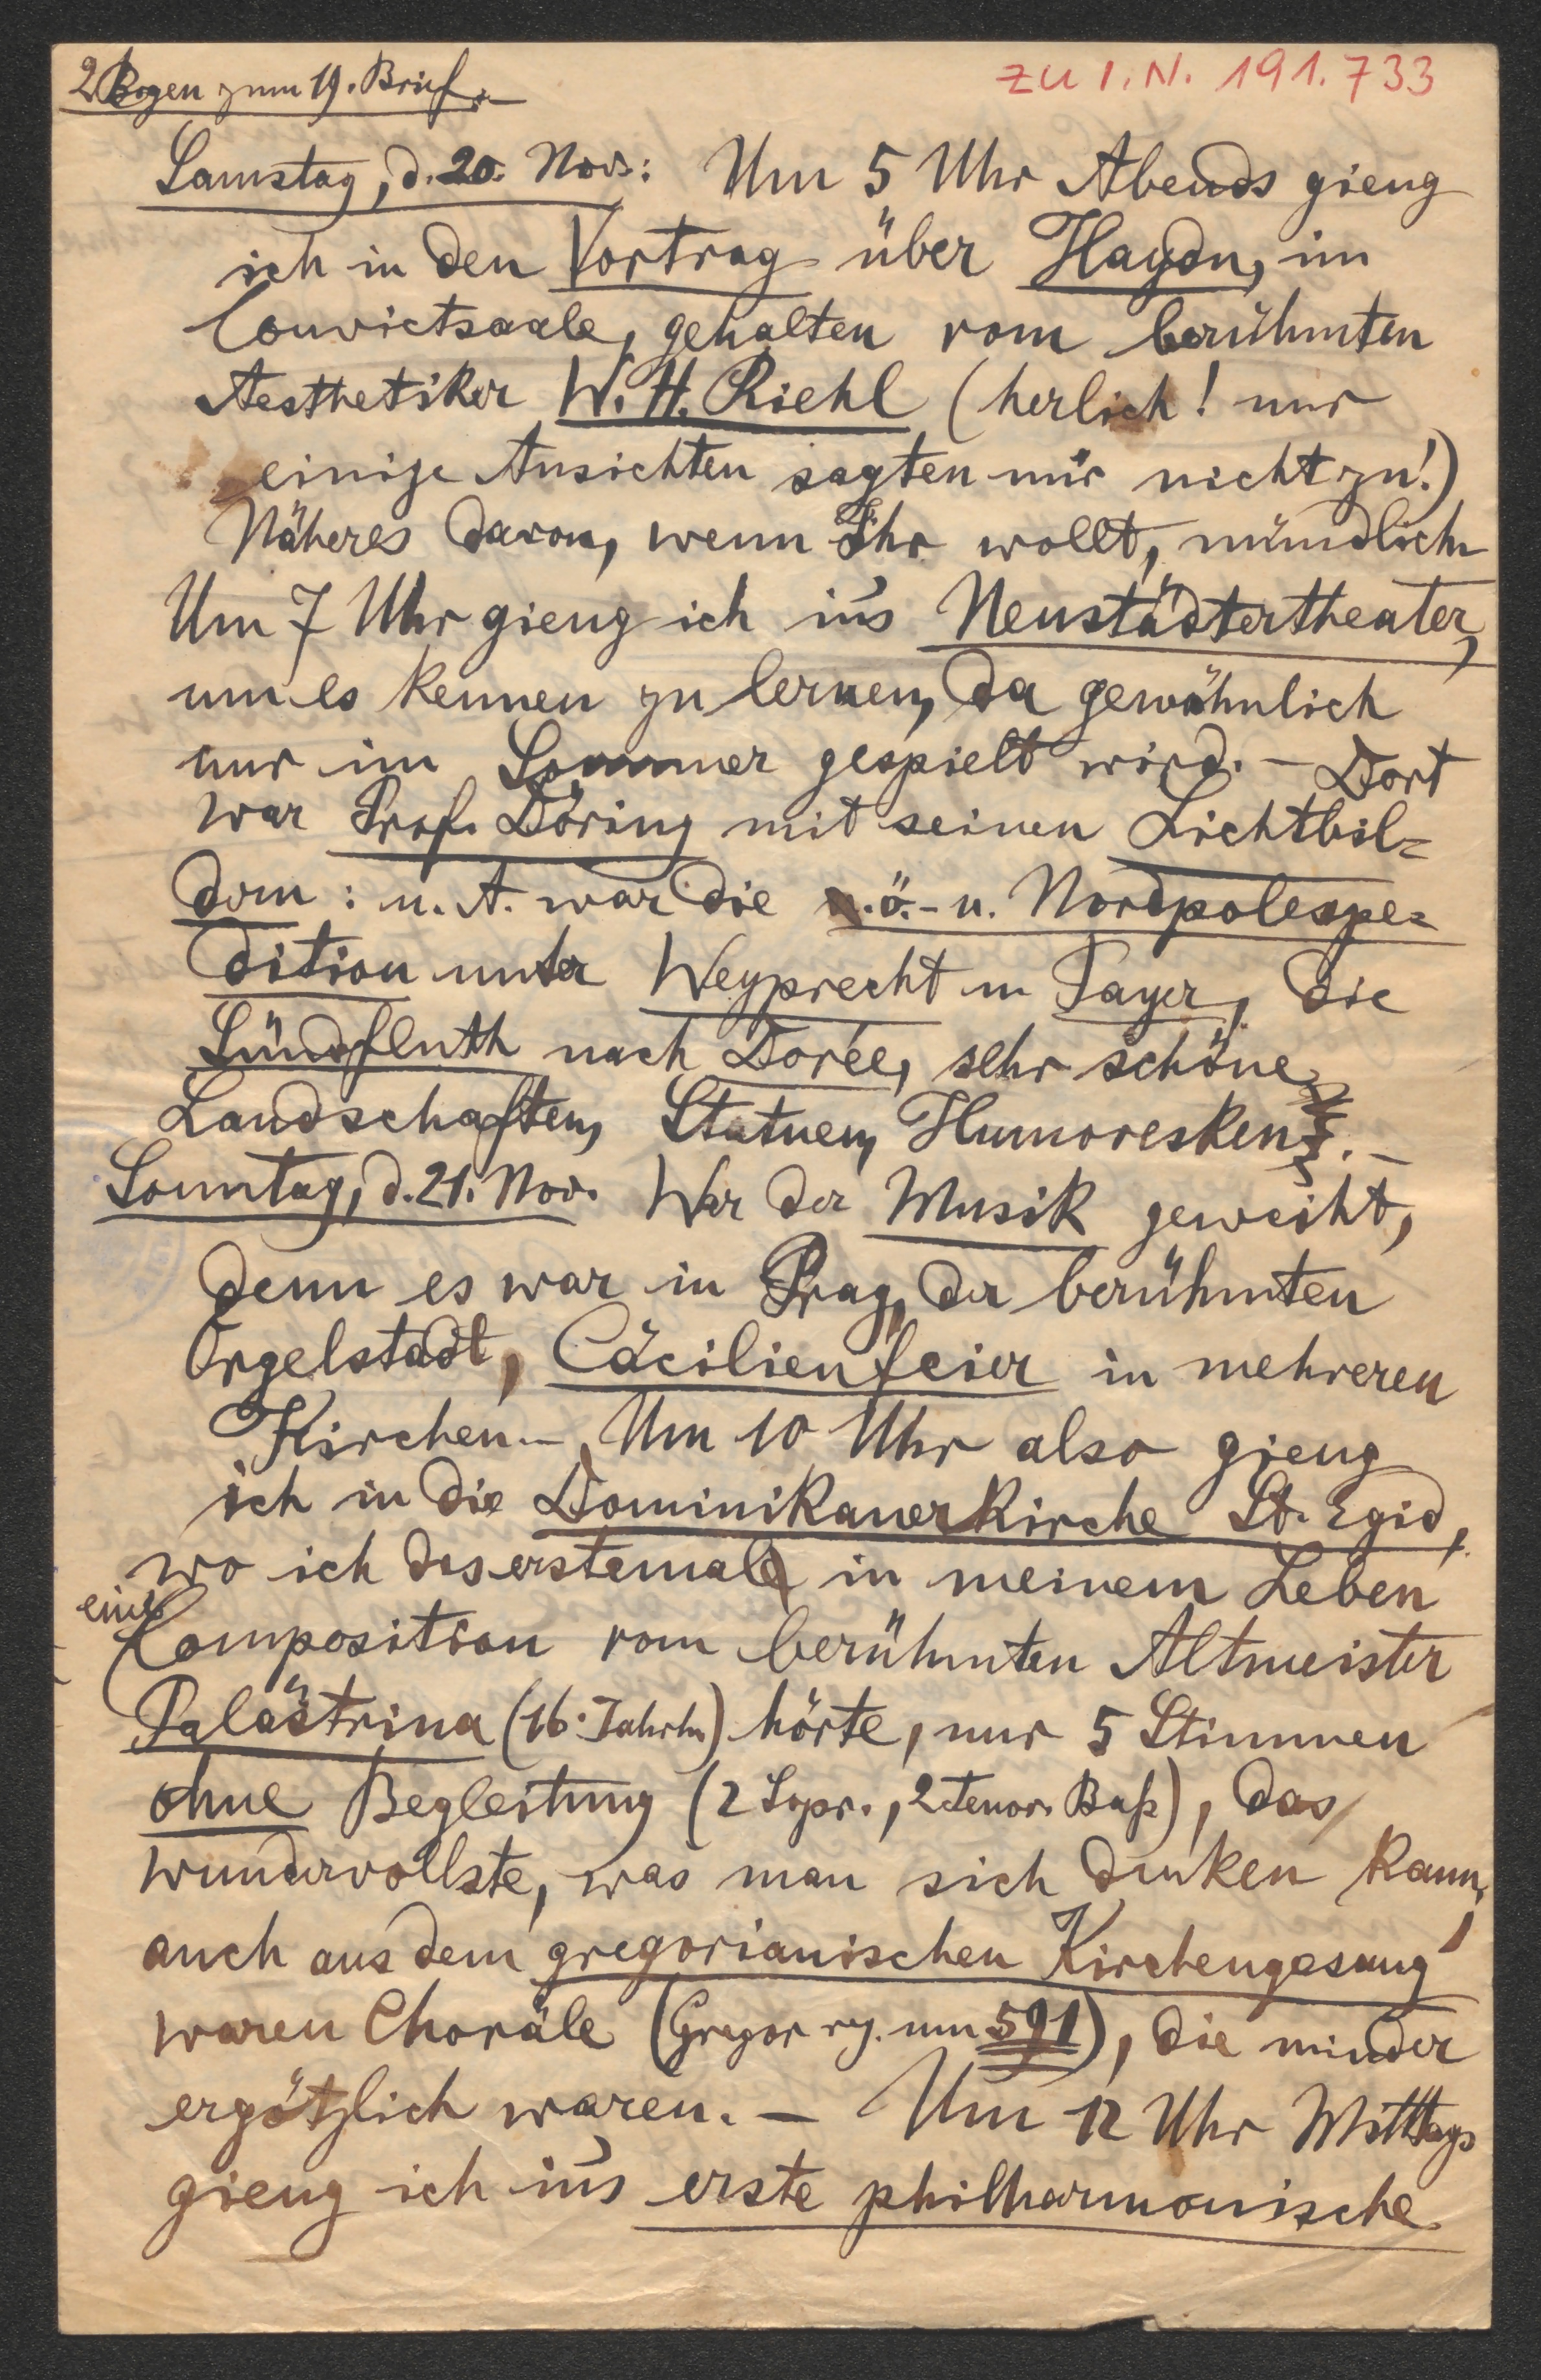 2 Bogen zum 19. Brief.–
zu I.N. 191.733
Samstag, d. 20. Nov.: Um 5 Uhr Abends gieng
ich in den Vortrag über Haydn, im
Convictsaale, gehalten vom berühmten
Aesthetiker W. H. Riehl (herlich! nur
einige Ansichten sagten mir nicht zu!)
Näheres davon, wenn Ihr wollt, mündlich
Um 7 Uhr gieng ich in's Neustädtertheater,
um es kennen zu lernen, da gewöhnlich
nur im Sommer gespielt wird. – Dort
war Prof. Döring mit seinen Lichtbil=
dern: u. A. war die ö.-u. Nordpolexpe=
dition unter Weyprecht u Payer, die
Sündfluth nach Dorée, sehr schöne
Landschaften, Statuen, Humoresken. –
Sonntag, d. 21. Nov. War der Musik geweiht,
denn es war in Prag, der berühmten
Orgelstadt, Cäcilienfeier in mehreren
Kirchen. – Um 10 Uhr also gieng
ich in die Dominikanerkirche St. Egid,
wo ich das erstemal in meinem Leben
eine Composition vom berühmten Altmeister
Palästrina (16. Jahrh.) hörte, nur 5 Stimmen
ohne Begleitung (2 Sopr., 2 Tenor. Baß), das
wundervollste, was man sich denken kann,
auch aus dem gregorianischen Kirchengesang
waren Choräle (Gregor reg. um 591), die minder
ergötzlich waren. – Um 12 Uhr Mittags
gieng ich in's erste philharmonische